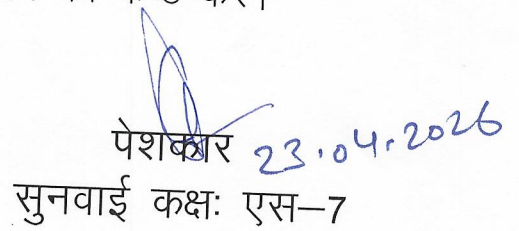 पेशकार 23.04.2026
सुनवाई कक्षः एस–7